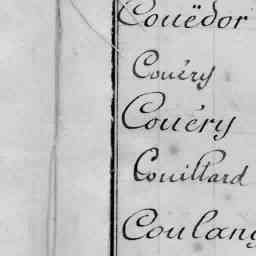 Couëdor
Couéry
Couéry
Couillard
Coulang